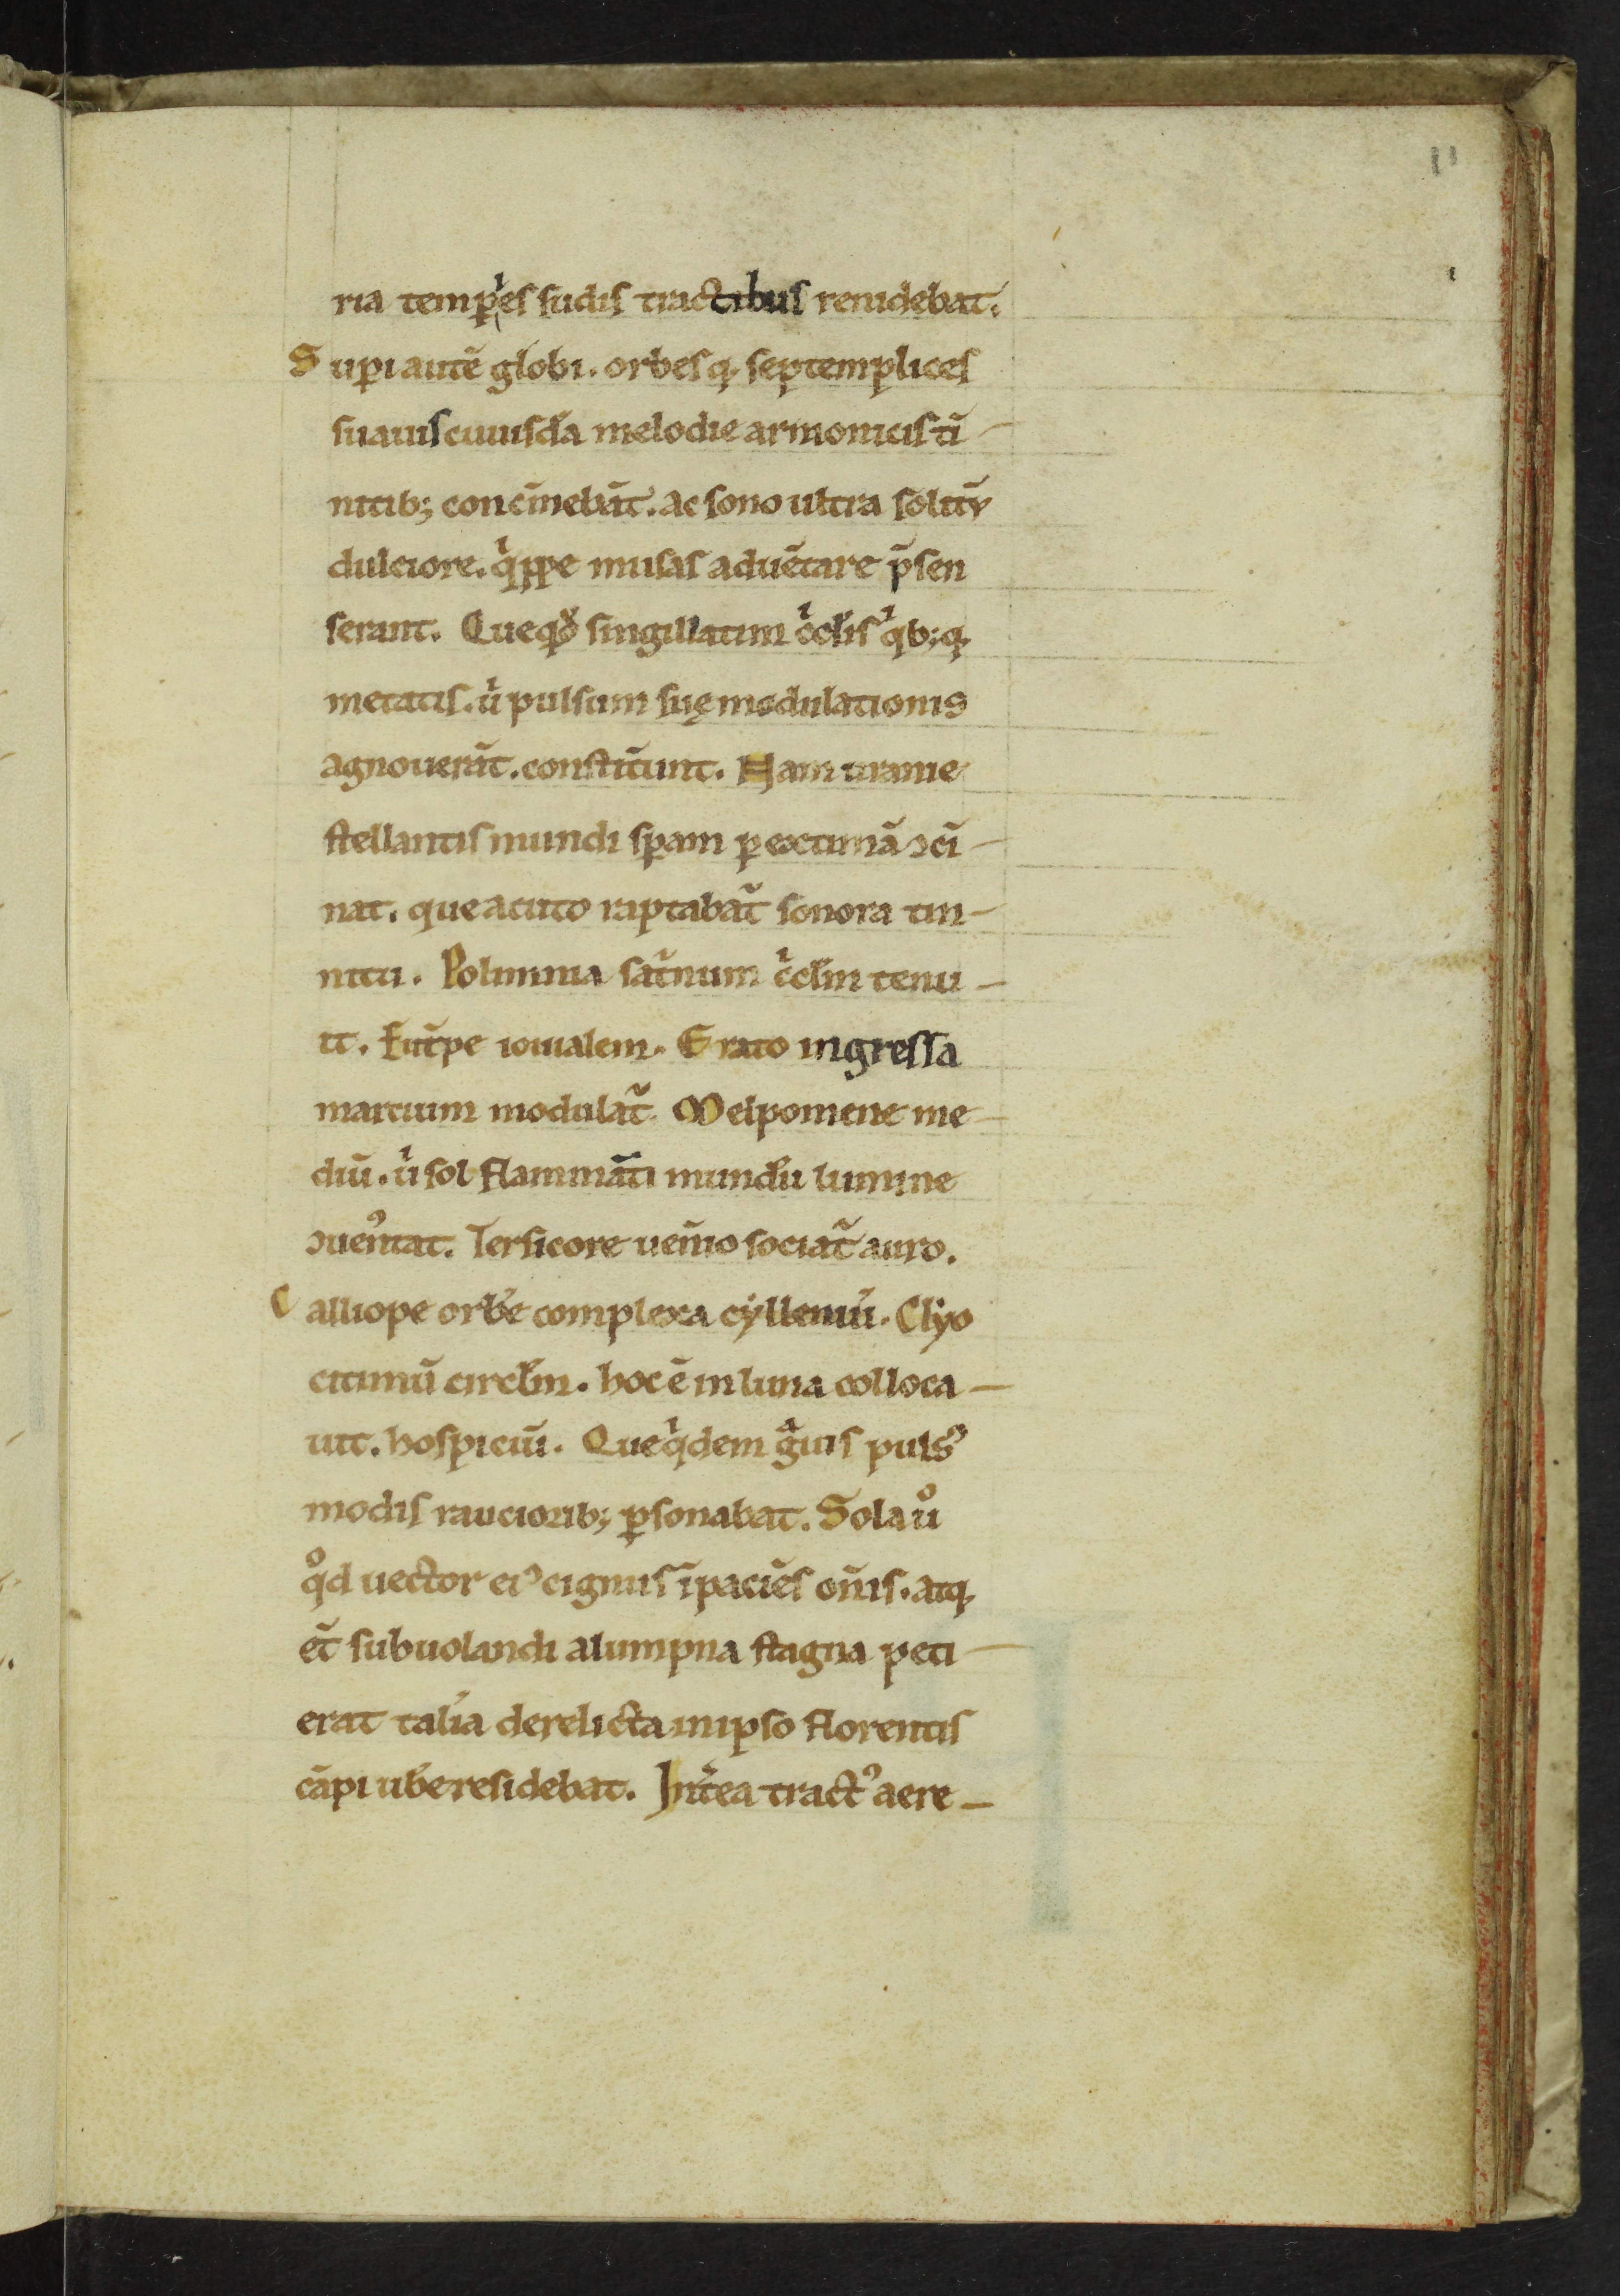 11
ria temp̲ⁱes sudis tractibus renidebat.
Sup̲i autē globi. orbesq; septemplices
suauis cuiusdā melodie armonicis ti
nitib; concinebāt. ac sono ultra solitū
dulciore. qⁱppe musas aduētare p̄sen
serant. Queqͦd singillatim cⁱclis qⁱb;q;
metatis. uⁱ pulsum suę modulationis
agnouerāt. constitūnt. Nam uranie
stellantis mundi sp̲am p̲ extimā ↄci
nat. que acuto raptabat᷑ sonora tin
nitu. Polimnia sat᷑num cⁱclm tenu
it. Eut᷑pe iouialem. Erato ingressa
martium modulat᷑. Melpomene me
diū. uⁱ sol flammāti mundū lumine
ↄuenꝰtat. Tersicore uen̄io sociat᷑ auro.
Calliope orbē complexa cylleniū. Clyo
citimū circłm. hoc ē in luna colloca
uit. hospiciū. Queqⁱdem gᵃuis pulsꝰ
modis rauciorib; p̲sonabat. Sola uͦ
qͦd uector eiꝰ cignus īpaciēs on̄is. atq;
et᷑ subuolandi alumpna stagna peti
erat talia derelicta in ipso florentis
cāpi ube residebat. Int᷑ea tractꝰ aere